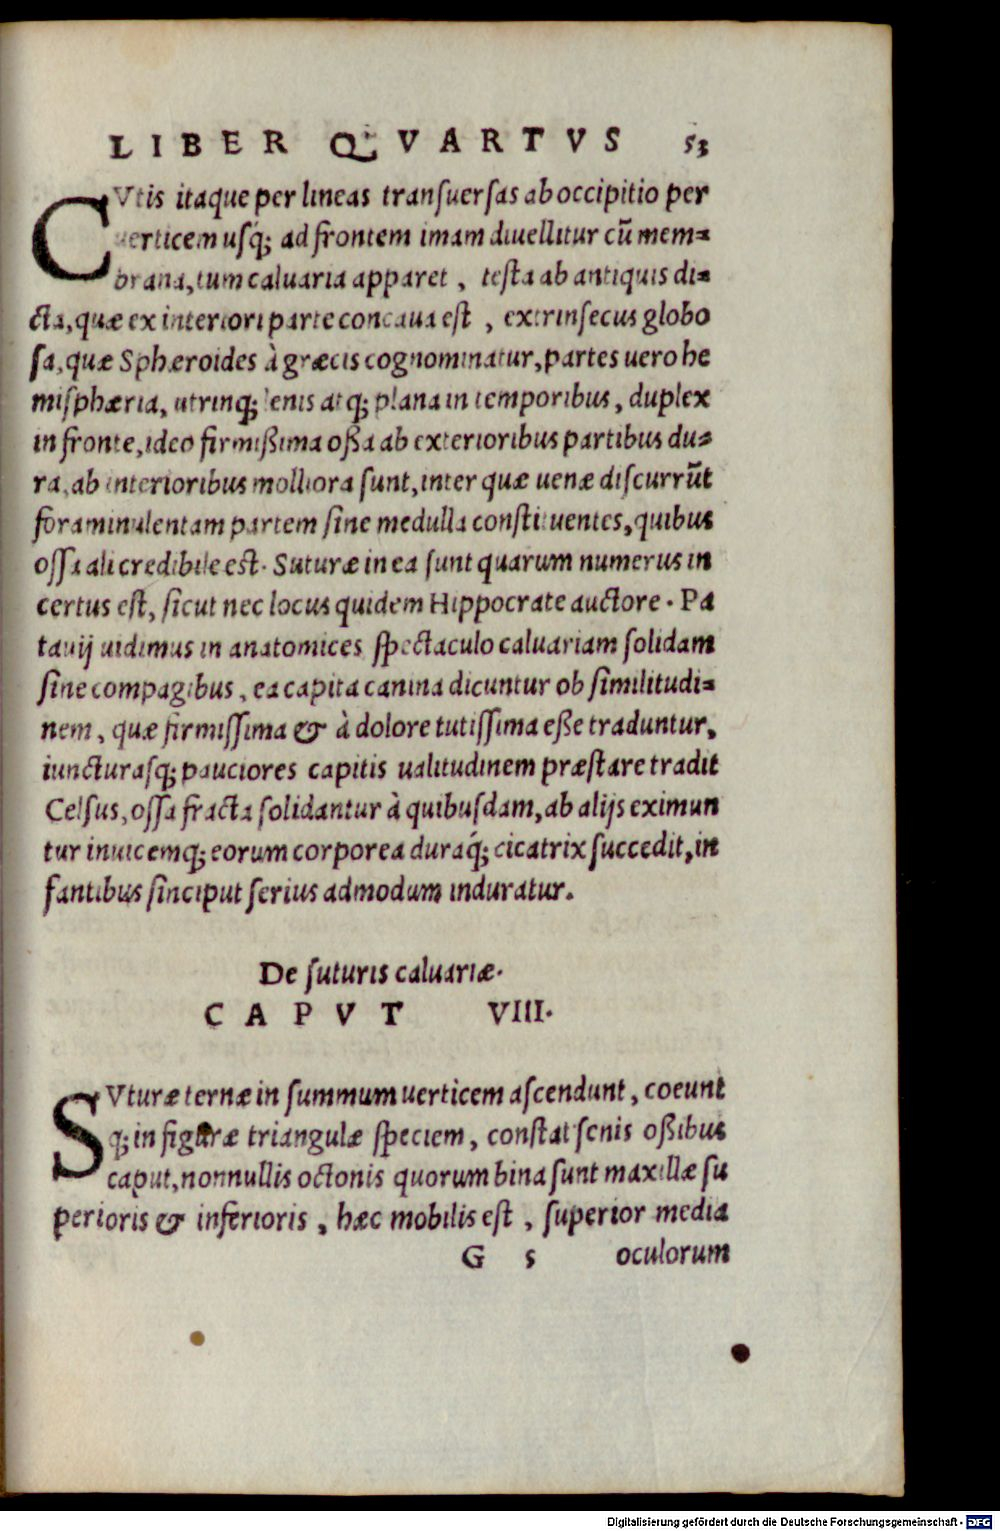 LIBER QVARTVS 53
CVtis itaque per lineas transuersas ab occipitio per
uerticem usq́; ad frontem imam diuellitur cū mem=
brana, tum caluaria apparet, testa ab antiquis di=
cta, quæ ex interiori parte concaua est, extrinsecus globo
sa, quæ Sphæroides à græcis cognominatur, partes uero he
misphæria, utrinq; lenis atq; plana in temporibus, duplex
in fronte, ideo firmißima oßa ab exterioribus partibus du=
ra, ab interioribus molliora sunt, inter quæ uenæ discurrūt
foraminulentam partem sine medulla constituentes, quibus
ossa ali credibile est. Suturæ in ea sunt quarum numerus in
certus est, sicut nec locus quidem Hippocrate auctore. Pa
tauij uidimus in anatomices spectaculo caluariam solidam
sine compagibus, ea capita canina dicuntur ob similitudi=
nem, quæ firmissima & à dolore tutissima eße traduntur,
iuncturasq; pauciores capitis ualitudinem præstare tradit
Celsus, ossa fracta solidantur à quibusdam, ab alijs eximun
tur inuicemq; eorum corporea duraq́; cicatrix succedit, in
fantibus sinciput serius admodum induratur.
De suturis caluariæ.
CAPVT VIII.
SVturæ ternæ in summum uerticem ascendunt, coeunt
q; in figuræ triangulæ speciem, constat senis oßibus
caput, nonnullis octonis quorum bina sunt maxillæ su
perioris & inferioris, hæc mobilis est, superior media
G 5 oculorum
Digitalisierung gefördert durch die Deutsche Forschungsgemeinschaft - DFG